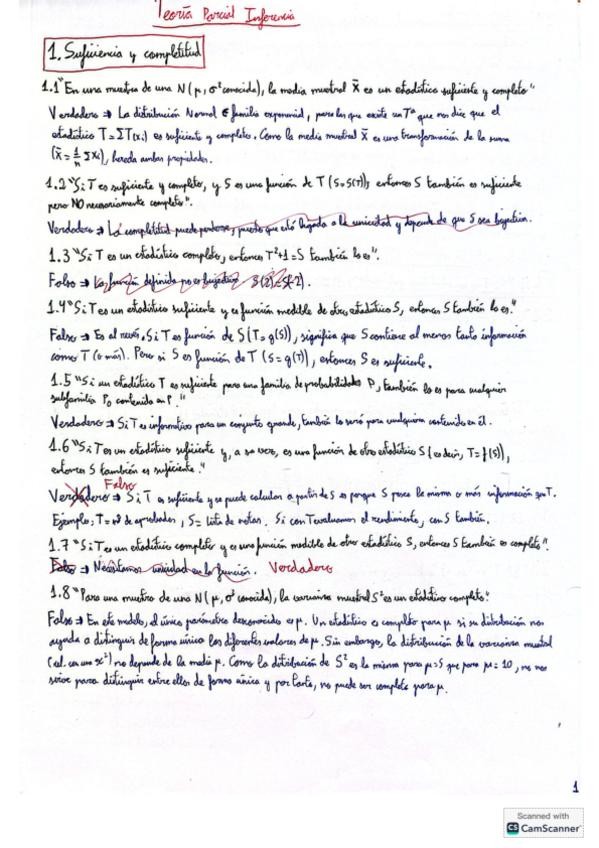 Teoría Parcial Inferencia
1. Suficiencia y completitud
1.1 "En una muestra de una N(μ, σ² conocida), la media muestral X̄ es un estadístico suficiente y completo"
Verdadero ⇒ La distribución Normal ∈ familia exponencial, para las que existe un Tª que nos dice que el
estadístico T = ΣT(xi) es suficiente y completo. Como la media muestral X̄ es una transformación de la suma
(X̄ = 1/n ΣXi), hereda ambas propiedades.
1.2 "Si T es suficiente y completo, y S es una función de T (S=S(T)), entonces S también es suficiente
pero NO necesariamente completo".
Verdadero ⇒ La completitud puede perderse, puesto que está ligada a la unicidad y depende de que S sea biyectiva.
1.3 "Si T es un estadístico completo, entonces T²+1=S también lo es".
Falso ⇒ La función definida no es biyectiva S(2)=S(-2).
1.4 "Si T es un estadístico suficiente y es función medible de otro estadístico S, entonces S también lo es."
Falso ⇒ Es al revés. Si T es función de S (T=g(S)), significa que S contiene al menos tanta información
como T (o más). Pero si S es función de T (S=g(T)), entonces S es suficiente.
1.5 "Si un estadístico T es suficiente para una familia de probabilidades P, también lo es para cualquier
subfamilia P₀ contenida en P."
Verdadero ⇒ Si T es informativo para un conjunto grande, también lo será para cualquiera contenido en él.
1.6 "Si T es un estadístico suficiente y, a su vez, es una función de otro estadístico S (es decir, T=f(S)),
entonces S también es suficiente."
Falso
Verdadero ⇒ Si T es suficiente y se puede calcular a partir de S es porque S posee la misma o más información que T.
Ejemplo: T = nº de aprobados, S = lista de notas. Si con T evaluamos el rendimiento, con S también.
1.7 "Si T es un estadístico completo y es una función medible de otro estadístico S, entonces S también es completo".
Falso ⇒ Necesitamos unicidad en la función. Verdadero
1.8 "Para una muestra de una N(μ, σ² conocida), la varianza muestral S² es un estadístico completo."
Falso ⇒ En este modelo, el único parámetro desconocido es μ. Un estadístico es completo para μ si su distribución nos
ayuda a distinguir de forma única los diferentes valores de μ. Sin embargo, la distribución de la varianza muestral
(rel. con una χ²) no depende de la media μ. Como la distribución de S² es la misma para μ=5 que para μ=10, no nos
sirve para distinguir entre ellos de forma única y por tanto, no puede ser completo para μ.
1
Scanned with
CS CamScanner